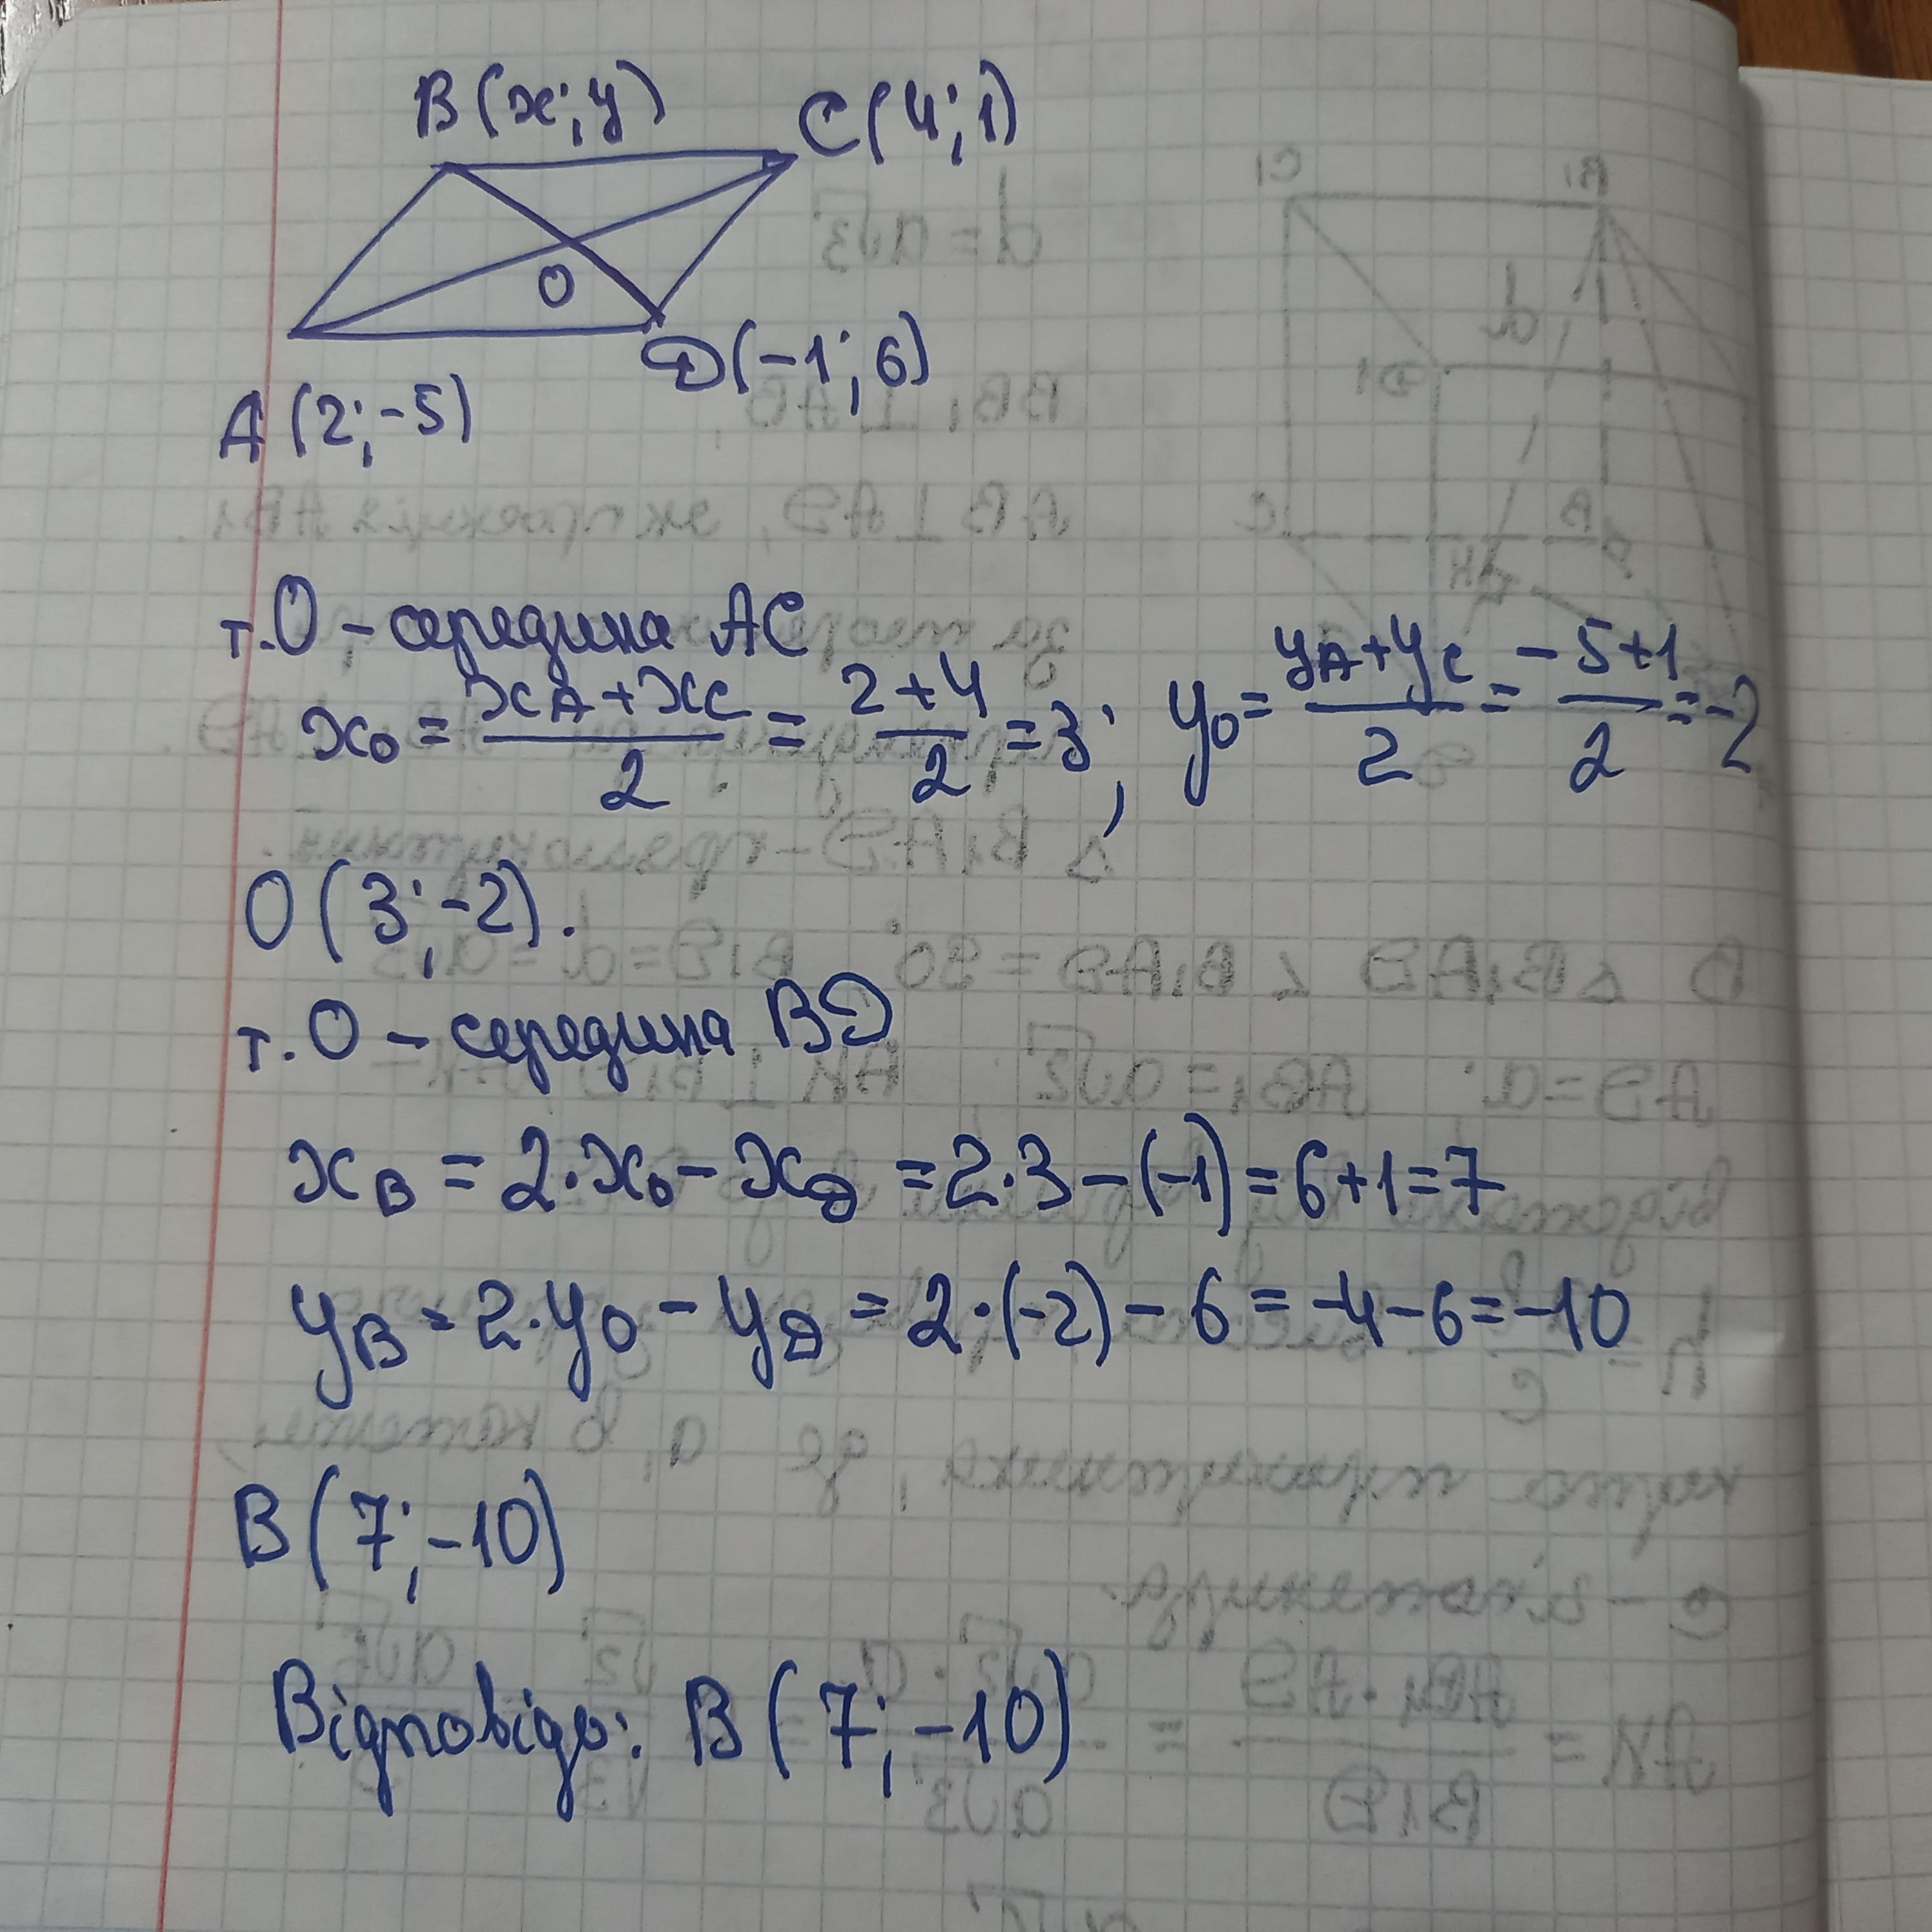 B(x; y)
C(4; 1)
O
D(-1; 6)
A(2; -5)
т.O - середина AC
x₀ = (xA + xC)/2 = (2+4)/2 = 3; y₀ = (yA + yC)/2 = (-5+1)/2 = -2
O(3; -2).
т.O - середина BD
xB = 2·x₀ - xD = 2·3 - (-1) = 6+1 = 7
yB = 2·y₀ - yD = 2·(-2) - 6 = -4-6 = -10
B(7; -10)
Відповідь: B(7; -10)